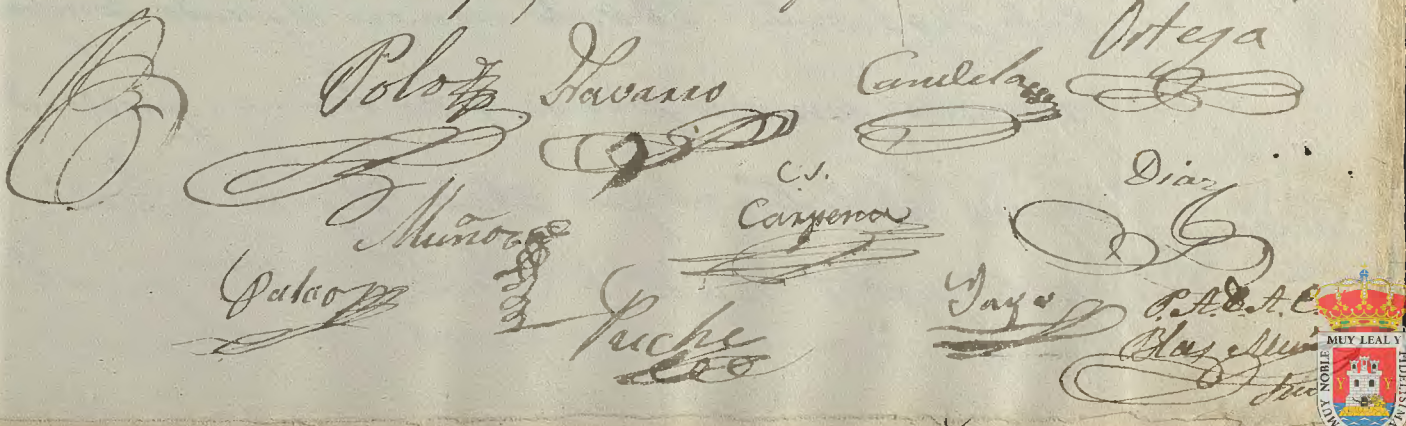 Polo Navarro Candelas Ortega
Muñoz C.S. Carpena Diaz
Palao Puche Yago P. A. D. A. C.
Blas Muñ
MUY NOBLE MUY LEAL Y FIDELISIMA
Y Y